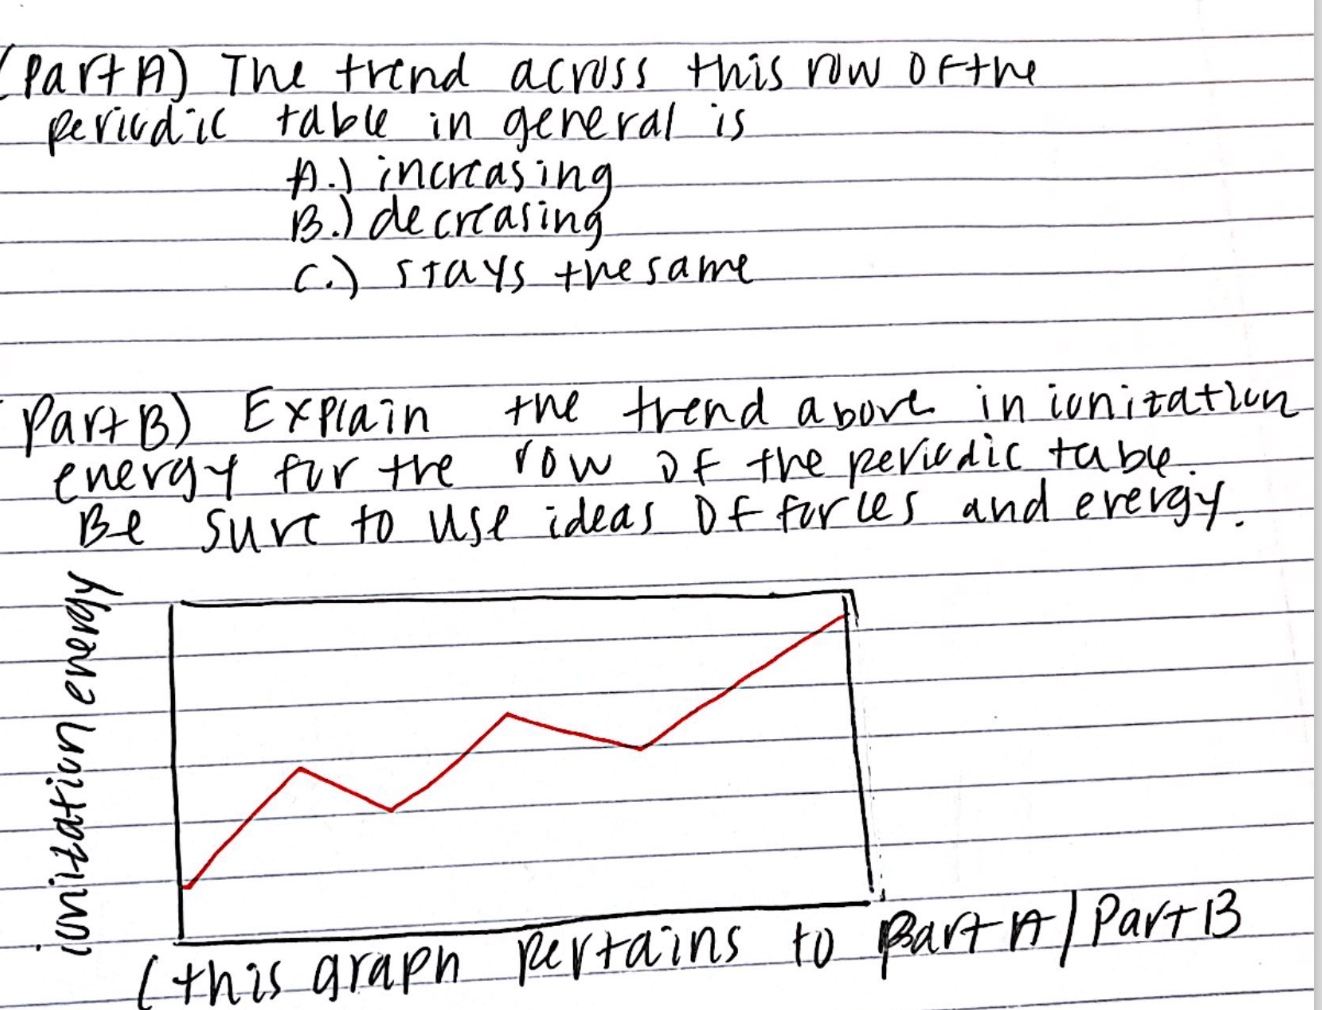 (Part A) The trend across this row of the
periodic table in general is
A.) increasing
B.) decreasing
C.) stays the same
Part B) Explain the trend above in ionization
energy for the row of the periodic table.
Be sure to use ideas of forces and energy.
ionization energy
(this graph pertains to Part A/Part B